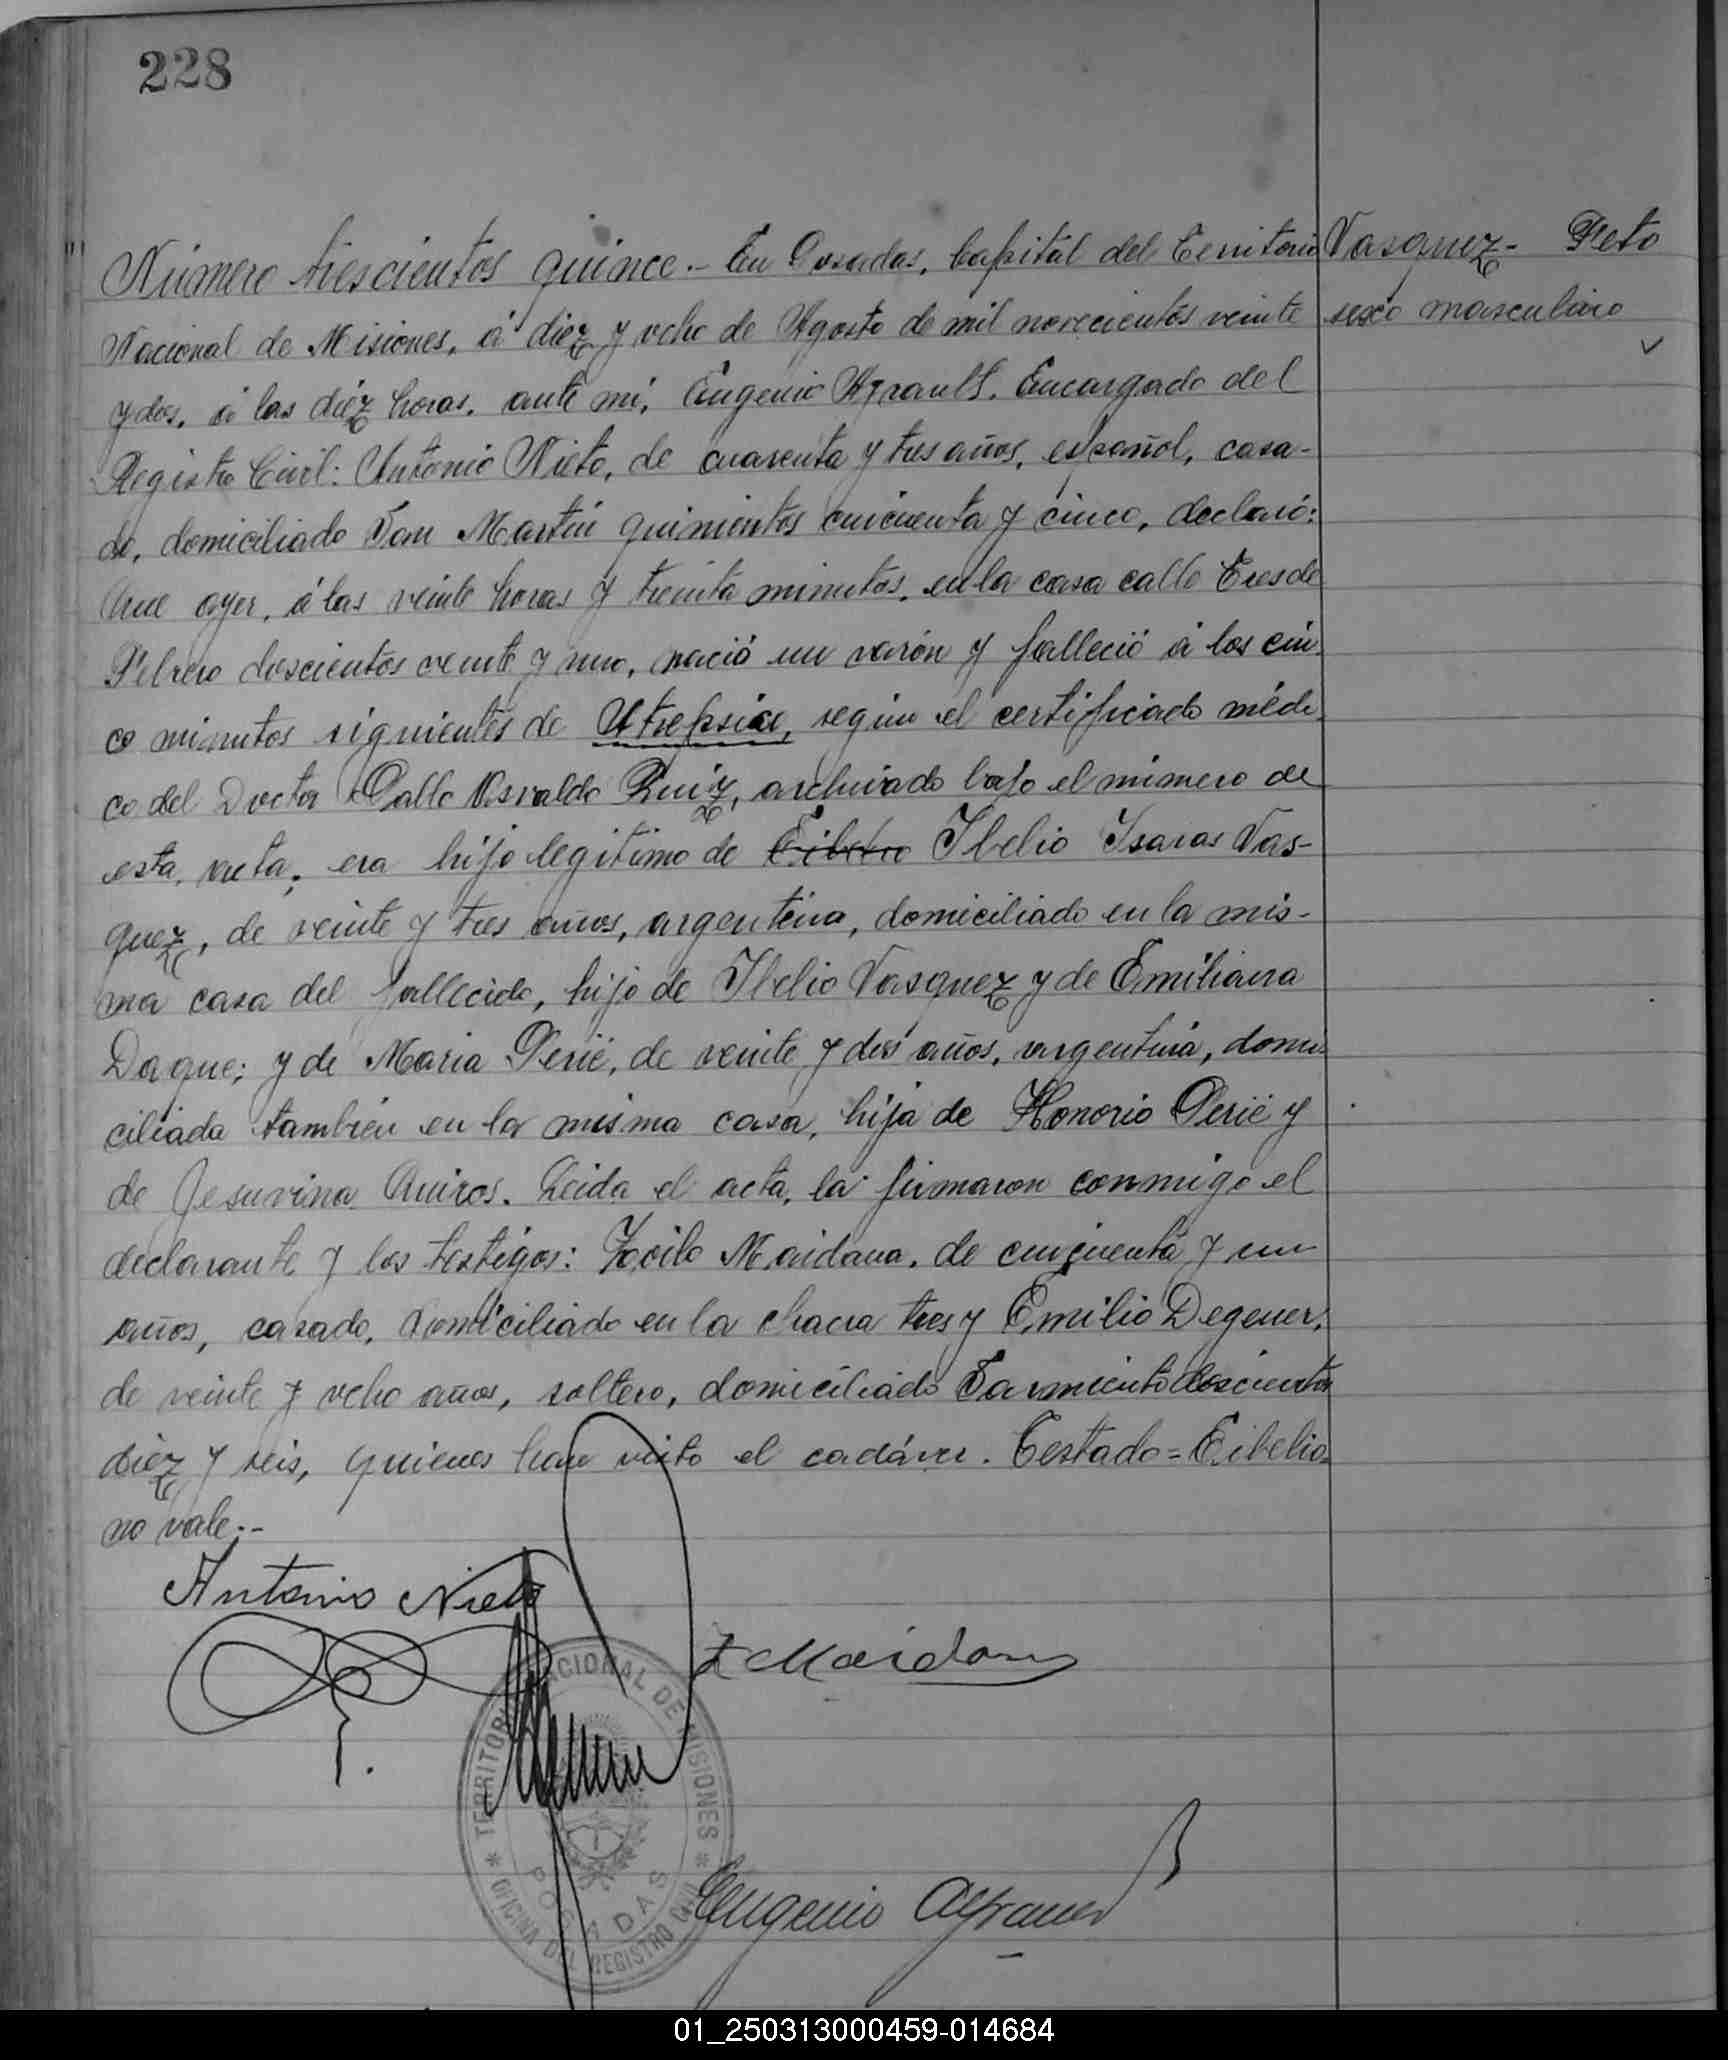 228
Número trescientos quince.- En Posadas, Capital del Territorio
Vasquez- Feto
Nacional de Misiones, á diez y ocho de Agosto de mil novecientos veinte
sexo masculino
y dos, á las diéz horas, ante mi, Eugenio Encargado del
Registro Civil: Antonio Nieto, de cuarenta y tres años, español, casa-
do, domiciliado San Martín quinientos cincuenta y cinco, declaró:
Que ayer, á las veinte horas y treinta minutos, en la casa calle Tres de
Febrero doscientos veinte y uno, nació un varón y falleció á los cin
co minutos siguientes de Atrepsia, según el certificado médi
co del Doctor Osvaldo Ruiz, archivado bajo el número de
esta acta; era hijo legítimo de Eibelio Ibelio Isaras Vas-
quez, de veinte y tres años, argentino, domiciliado en la mis-
ma casa del fallecido, hijo de Ibelio Vasquez y de Emiliana
Daque; y de Maria Perié, de veinte y dos años, argentina, domi
ciliada también en la misma casa, hija de Honorio Perié y
de Jesuvina Quiros. Leida el acta, la firmaron conmigo el
declarante y los testigos: Zoilo Maidana, de cincuenta y un
años, casado, domiciliado en la chacra tres y Emilio Degener,
de veinte y ocho años, soltero, domiciliado Sarmiento doscientos
diez y seis, quienes han visto el cadáver. Testado=Eibelio=
no vale.-
Antonio Nieto
Z Maidana
TERRITORIO NACIONAL DE MISIONES
POSADAS
* OFICINA DEL REGISTRO CIVIL *
Eugenio
01_250313000459-014684